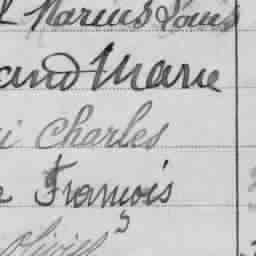 Marius Louis
and Marie
i Charles
e François
Olivier